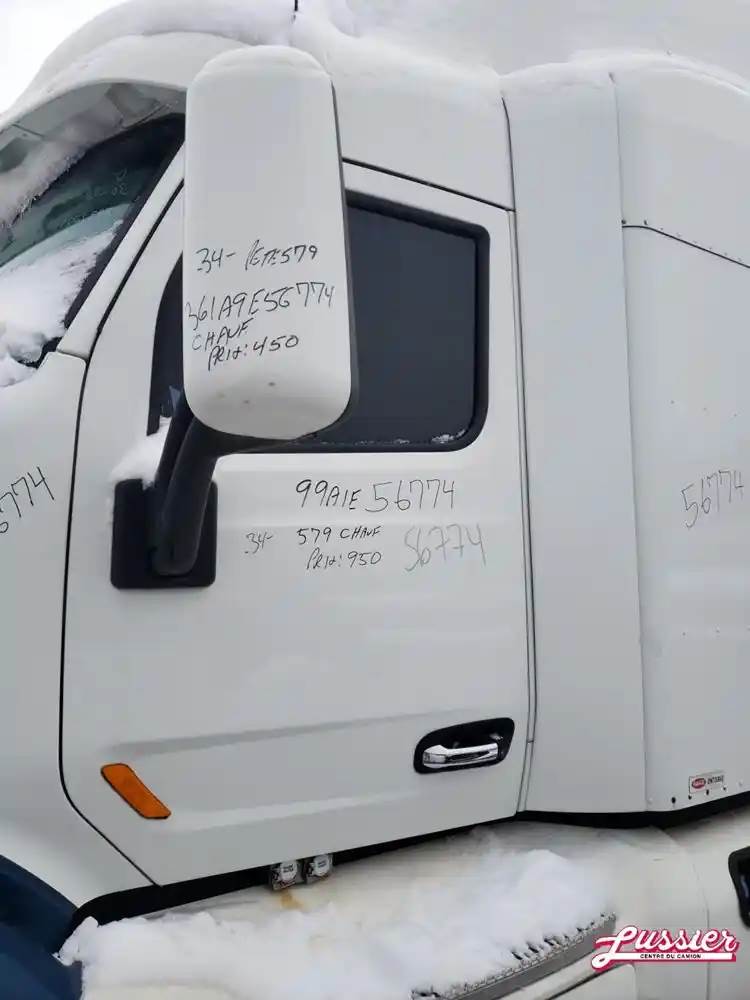 .34- PETE579
361A9E56774
CHAUF
PRIX: 450
99A1E 56774
.34- 579 CHAUF 56774
PRIX: 950
56774
6774
Lussier
CENTRE DU CAMION